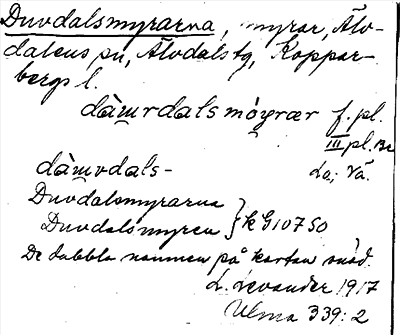 Duvdalsmyrarna, myrar, Älv-
dalens sn, Älvdals tg, Koppar-
bergs l.
dàɯrdalsmóyrær f. pl.
III pl. Be
dàɯvdals- La, Vå.
Duvdalsmyrarna
Duvdalsmyren } k G10750
De dubbla namnen på kartan nöd.
L. Levander 1917
Ulma 339:2